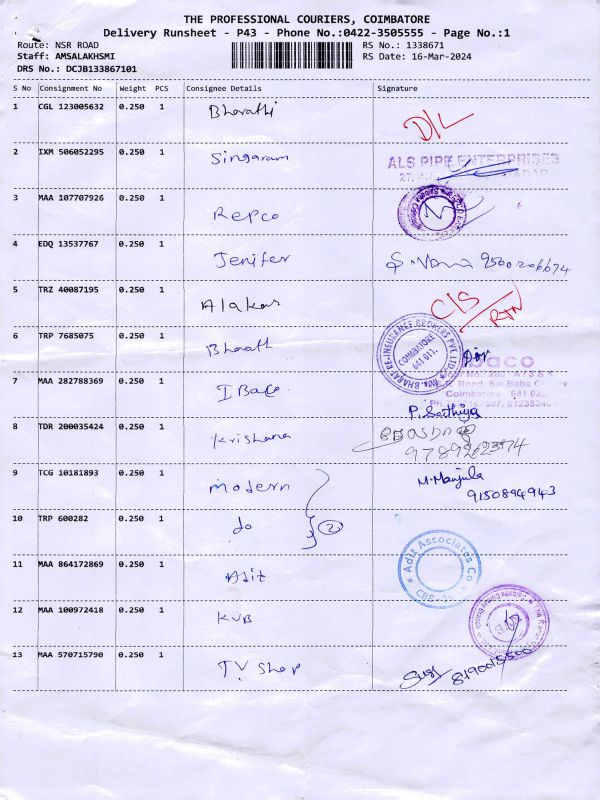 THE PROFESSIONAL COURIERS, COIMBATORE
Delivery Runsheet - P43 - Phone No.:0422-3505555 - Page No.:1
Route: NSR ROAD RS No.: 1338671
Staff: AMSALAKHSMI RS Date: 16-Mar-2024
DRS No.: DCJB133867101
S No Consignment No Weight PCS Consignee Details Signature
1 CGL 123005632 0.250 1 Bharathi D/L
2 IXM 506052295 0.250 1 Singaram ALS PIPE ENTERPRISES
3 MAA 107707926 0.250 1 Repco
4 EDQ 13537767 0.250 1 Jenifer
5 TRZ 40087195 0.250 1 Alakar C/S RTN
6 TRP 7685075 0.250 1 Bharath BHARAT RE-INSURANCE BROKERS PVT. LTD. COIMBATORE 641 011.
7 MAA 282788369 0.250 1 IBaco Road, Sai Baba
Coimbatore
P. Sathiya
8 TDR 200035424 0.250 1 Krishana
9 TCG 10181893 1 0.250 modern M. Manjula
9150894943
10 TRP 600282 0.250 1 do 2
11 MAA 864172869 0.250 1 Adit Adit Associates Co
12 MAA 100972418 0.250 1 KVB
13 MAA 570715790 0.250 1 T.V Shop